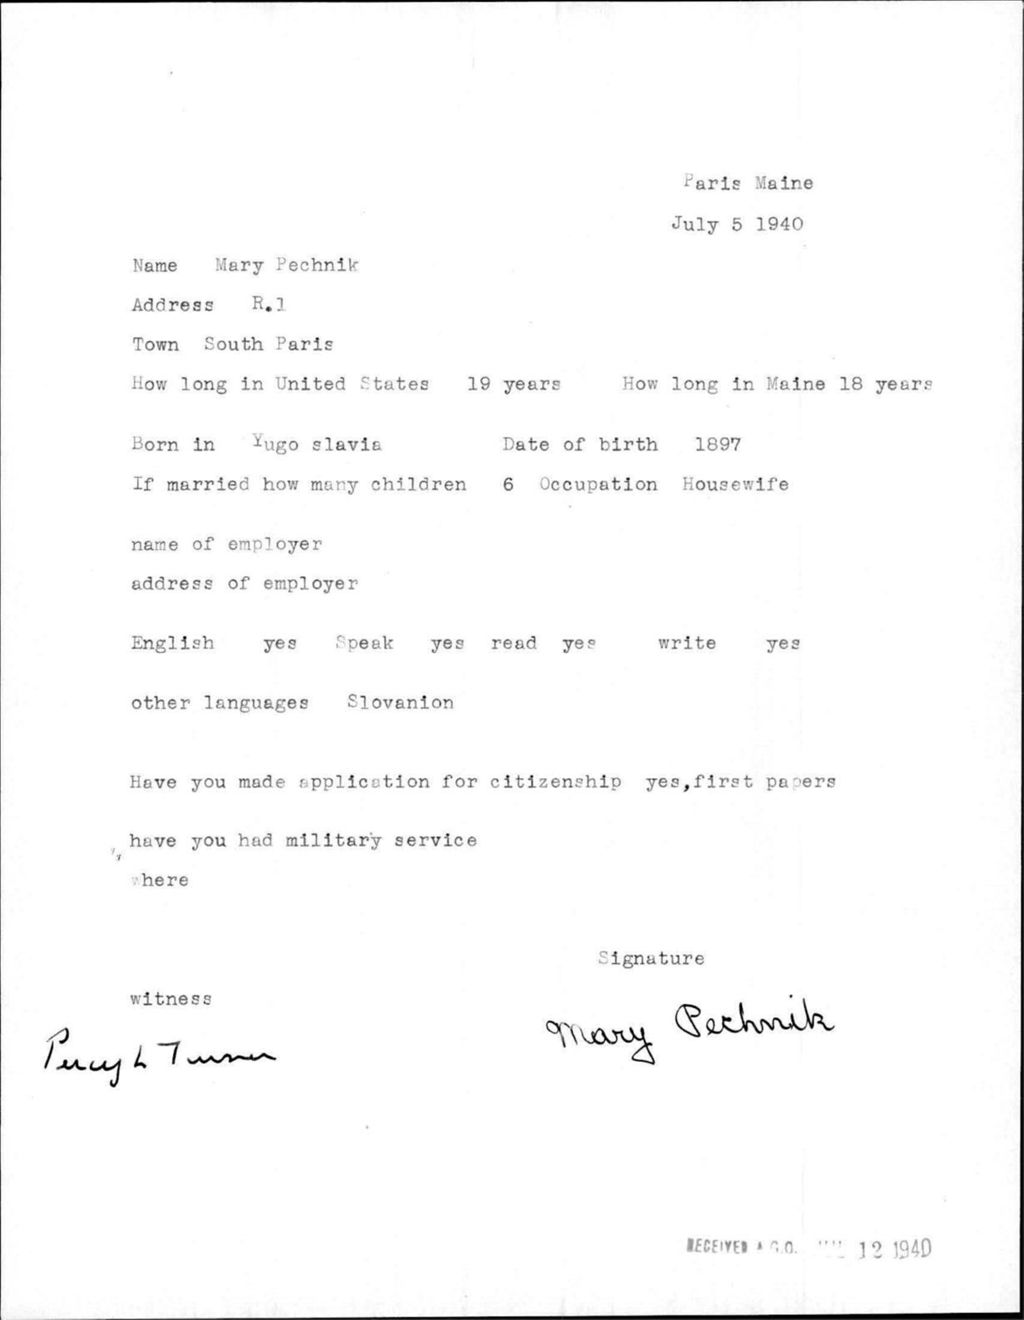 Paris Maine
July 5 1940
Name Mary Pechnik
Address R.1
Town South Paris
How long in United States 19 years How long in Maine 18 years
Born in Yugo slavia Date of birth 1897
If married how many children 6 Occupation Housewife
name of employer
address of employer
English yes Speak yes read yes write yes
other languages Slovanion
Have you made application for citizenship yes,first papers
have you had military service
where
Signature
witness
Mary Pechnik
Percy L Turner
RECEIVED A.G.O. JUL 12 1940